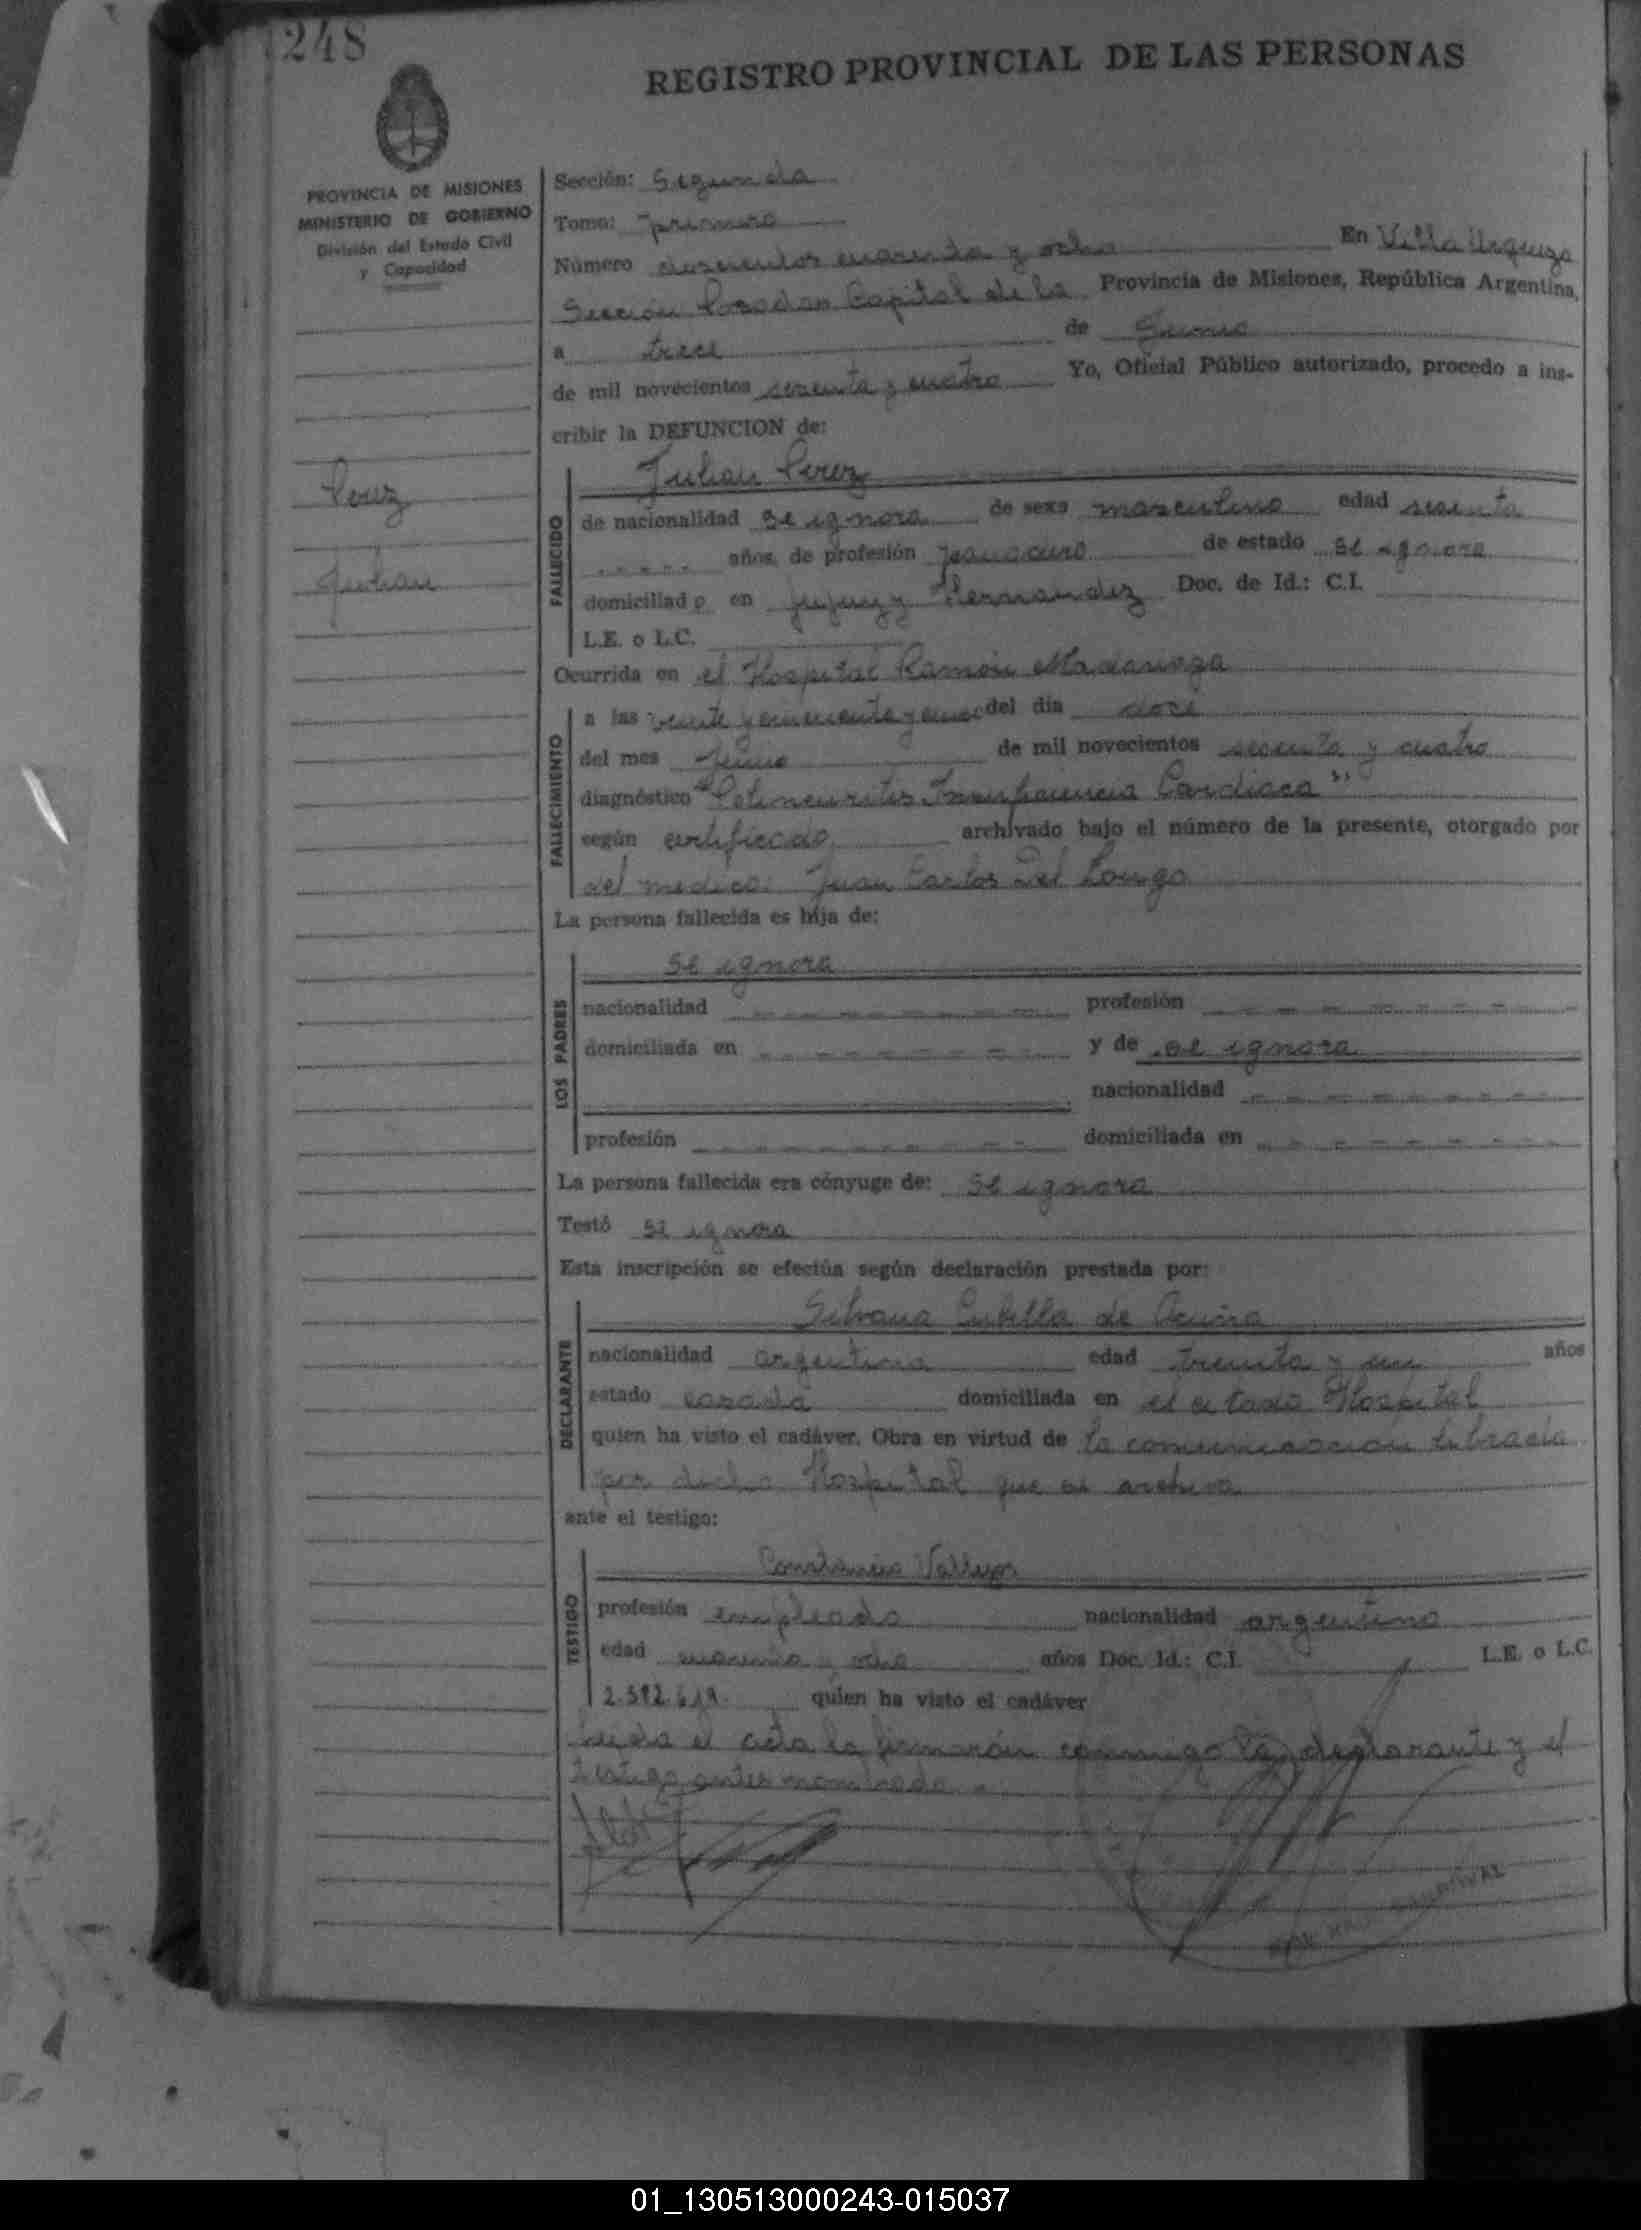 248
REGISTRO PROVINCIAL DE LAS PERSONAS
PROVINCIA DE MISIONES
MINISTERIO DE GOBIERNO
División del Estado Civil
y Capacidad
Perez
Julian
Sección: Segunda
Tomo: primero
Número doscientos cuarenta y ocho En Villa Urquiza
Sección Posadas Capital de la Provincia de Misiones, República Argentina,
a trece de Junio
de mil novecientos sesenta y cuatro Yo, Oficial Público autorizado, procedo a ins-
cribir la DEFUNCION de:
FALLECIDO
Julian Perez
de nacionalidad se ignora de sexo masculino edad sesenta
años, de profesión de estado se ignora
domiciliado en Jujuy y Hernandez Doc. de Id.: C.I.
L.E. o L.C.
Ocurrida en el Hospital Ramón Madariaga
FALLECIMIENTO
a las veinte y cincuenta y cinco del día doce
del mes Junio de mil novecientos sesenta y cuatro
diagnóstico "Polineuritis Insuficiencia Cardiaca"
según certificado archivado bajo el número de la presente, otorgado por
del medico: Juan Carlos Del Longo
La persona fallecida es hija de:
LOS PADRES
se ignora
nacionalidad - - - - - - - - profesión - - - - - - - -
domiciliada en - - - - - - - - y de se ignora
nacionalidad - - - - - - - -
profesión - - - - - - - - domiciliada en - - - - - - - -
La persona fallecida era cónyuge de: se ignora
Testó se ignora
Esta inscripción se efectúa según declaración prestada por:
DECLARANTE
Silvana Cubilla de Acuña
nacionalidad argentina edad treinta y un años
estado casada domiciliada en el citado Hospital
quien ha visto el cadáver. Obra en virtud de la comunicacion librada
por dicho Hospital que se archiva
ante el testigo:
TESTIGO
Constancio Vallejos
profesión empleado nacionalidad argentino
edad cuarenta y ocho años Doc. Id.: C.I. L.E. o L.C.
2.592.619. quien ha visto el cadáver
Leida el acta la firmarón conmigo la declarante y el
testigo antes nombrado.-
SANDOVAL
01_130513000243-015037